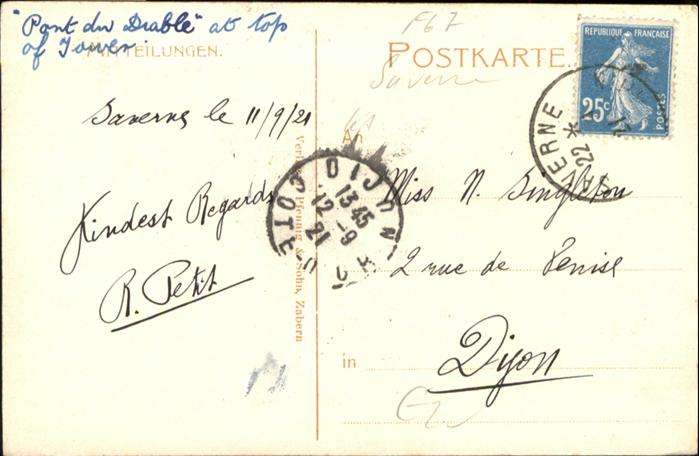 "Pont du Diable" at top
of Tower
MITTEILUNGEN.
Saverne le 11/9/21
Kindest Regards
R. Petit
Pfennig & Sohn, Zabern
F67
POSTKARTE
Saverne
RÉPUBLIQUE FRANÇAISE
25c
POSTES
SAVERNE
22 *
21
DIJON
COTE
13 45
12 -9
21
Miss N. Singleton
2 rue de Venise
in
Dijon